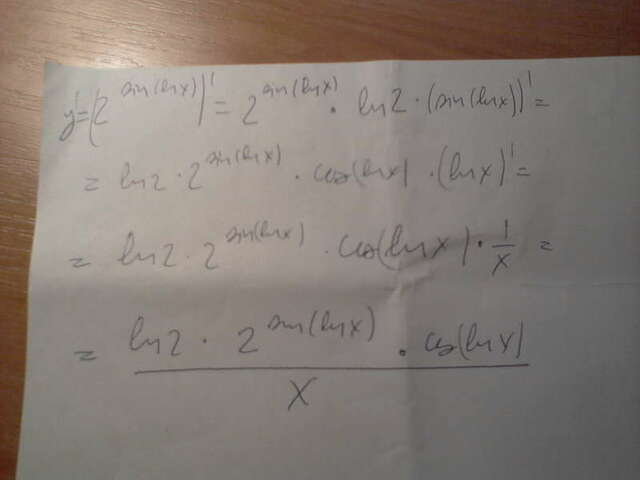 y'=(2^sin(lnx))' = 2^sin(lnx) · ln2 · (sin(lnx))' =
= ln2 · 2^sin(lnx) · cos(lnx) · (lnx)' =
= ln2 · 2^sin(lnx) · cos(lnx) · 1/x =
= ln2 · 2^sin(lnx) · cos(lnx) / x